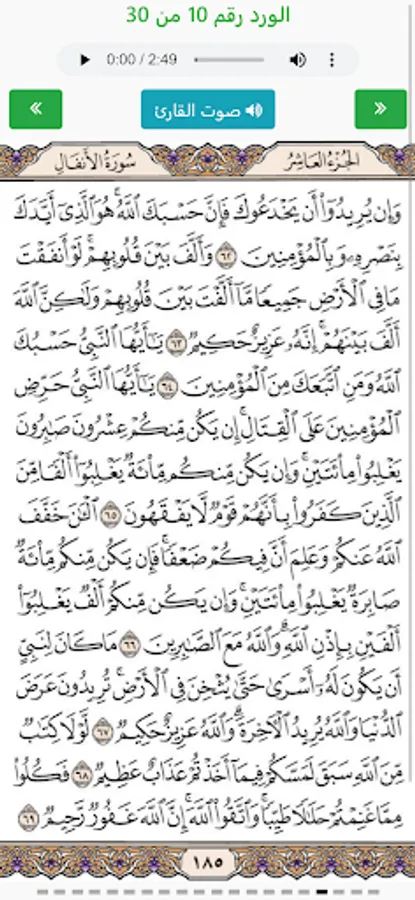 الورد رقم 10 من 30
0:00 / 2:49
صوت القارئ
الجُزْءُ العَاشِرُ
سُورَةُ الأَنفَالِ
وَإِن يُرِيدُوٓا۟ أَن يَخْدَعُوكَ فَإِنَّ حَسْبَكَ ٱللَّهُ ۚ هُوَ ٱلَّذِىٓ أَيَّدَكَ
بِنَصْرِهِۦ وَبِٱلْمُؤْمِنِينَ ٦٢ وَأَلَّفَ بَيْنَ قُلُوبِهِمْ ۚ لَوْ أَنفَقْتَ
مَا فِى ٱلْأَرْضِ جَمِيعًا مَّآ أَلَّفْتَ بَيْنَ قُلُوبِهِمْ وَلَٰكِنَّ ٱللَّهَ
أَلَّفَ بَيْنَهُمْ ۚ إِنَّهُۥ عَزِيزٌ حَكِيمٌ ٦٣ يَٰٓأَيُّهَا ٱلنَّبِىُّ حَسْبُكَ
ٱللَّهُ وَمَنِ ٱتَّبَعَكَ مِنَ ٱلْمُؤْمِنِينَ ٦٤ يَٰٓأَيُّهَا ٱلنَّبِىُّ حَرِّضِ
ٱلْمُؤْمِنِينَ عَلَى ٱلْقِتَالِ ۚ إِن يَكُن مِّنكُمْ عِشْرُونَ صَٰبِرُونَ
يَغْلِبُوا۟ مِا۟ئَتَيْنِ ۚ وَإِن يَكُن مِّنكُم مِّا۟ئَةٌ يَغْلِبُوٓا۟ أَلْفًا مِّنَ
ٱلَّذِينَ كَفَرُوا۟ بِأَنَّهُمْ قَوْمٌ لَّا يَفْقَهُونَ ٦٥ ٱلْـَٰٔنَ خَفَّفَ
ٱللَّهُ عَنكُمْ وَعَلِمَ أَنَّ فِيكُمْ ضَعْفًا ۚ فَإِن يَكُن مِّنكُم مِّا۟ئَةٌ
صَابِرَةٌ يَغْلِبُوا۟ مِا۟ئَتَيْنِ ۚ وَإِن يَكُن مِّنكُمْ أَلْفٌ يَغْلِبُوٓا۟
أَلْفَيْنِ بِإِذْنِ ٱللَّهِ ۗ وَٱللَّهُ مَعَ ٱلصَّٰبِرِينَ ٦٦ مَا كَانَ لِنَبِىٍّ
أَن يَكُونَ لَهُۥٓ أَسْرَىٰ حَتَّىٰ يُثْخِنَ فِى ٱلْأَرْضِ ۚ تُرِيدُونَ عَرَضَ
ٱلدُّنْيَا وَٱللَّهُ يُرِيدُ ٱلْـَٔاخِرَةَ ۗ وَٱللَّهُ عَزِيزٌ حَكِيمٌ ٦٧ لَّوْلَا كِتَٰبٌ
مِّنَ ٱللَّهِ سَبَقَ لَمَسَّكُمْ فِيمَآ أَخَذْتُمْ عَذَابٌ عَظِيمٌ ٦٨ فَكُلُوا۟
مِمَّا غَنِمْتُمْ حَلَٰلًا طَيِّبًا ۚ وَٱتَّقُوا۟ ٱللَّهَ ۚ إِنَّ ٱللَّهَ غَفُورٌ رَّحِيمٌ ٦٩
١٨٥